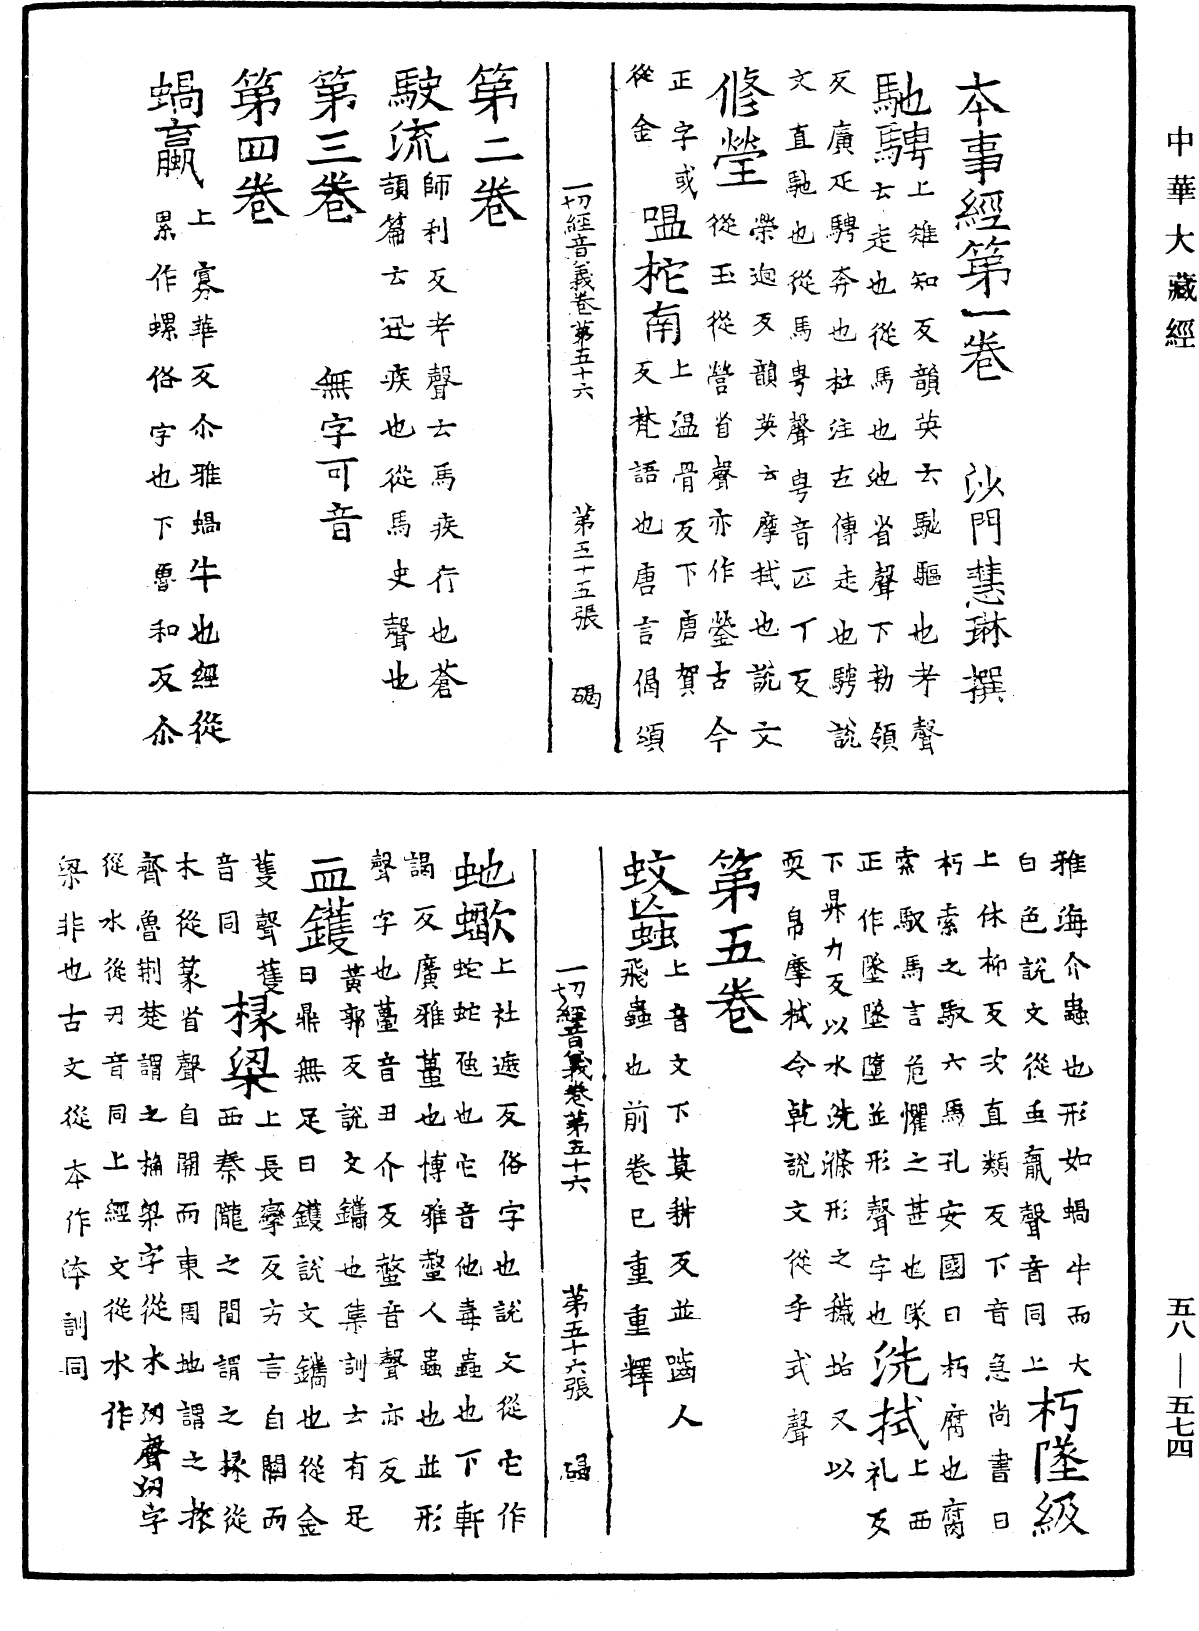 中華大藏經
本事經第一卷 沙門慧琳撰
馳騁上雉知反韻英云馳驅也考聲
云走也從馬也池省聲下勑領
反廣疋騁奔也杜注左傳走也騁說
文直馳也從馬甹聲甹音匹丁反
修瑩榮迥反韻英云摩拭也說文
從玉從營省聲亦作鎣古今
正字或
從金
嗢柁南上溫骨反下唐賀
反梵語也唐言偈頌
一切經音義卷第五十六 第五十五張 碣
第二卷
駛流師利反考聲云馬疾行也蒼
頡篇云迅疾也從馬史聲也
第三卷 無字可音
第四卷
蝸蠃上寡華反尒雅蝸牛也經從
累作螺俗字也下魯和反尒
雅海介蟲也形如蝸牛而大
白色說文從虫聲音同上
朽墜級
上休柳反次直類反下音急尚書曰
朽索之馭六馬孔安國曰朽腐也腐
索馭馬言危懼之甚也隊
正作墜墜墮並形聲字也
洗拭上西礼反
下昇力反以水洗滌形之穢垢又以
耎帛摩拭令乾說文從手式聲
第五卷
蚊蝱上音文下莫耕反並齧人
飛蟲也前卷已重重釋
一切經音義卷第五十六 第五十六張 碣
虵蠍上社遮反俗字也說文從它作
蛇蛇虺也它音他毒蟲也下軒
謁反廣雅蠆也博雅蠚人蟲也並形
聲字也蠆音丑介反螫音聲亦反
鑊黃郭反說文鑴也集訓云有足
曰鼎無足曰鑊說文鑴也從金
蒦聲蒦
音同
椽梁上長攣反方言自關而
西秦隴之間謂之椽從
木從彖省聲自關而東周地謂之榱
齊魯荊楚謂之桷梁字從木汈聲汈字
從水從刃音同上經文從水作
梁非也古文從本作㳰訓同
五八—五七四